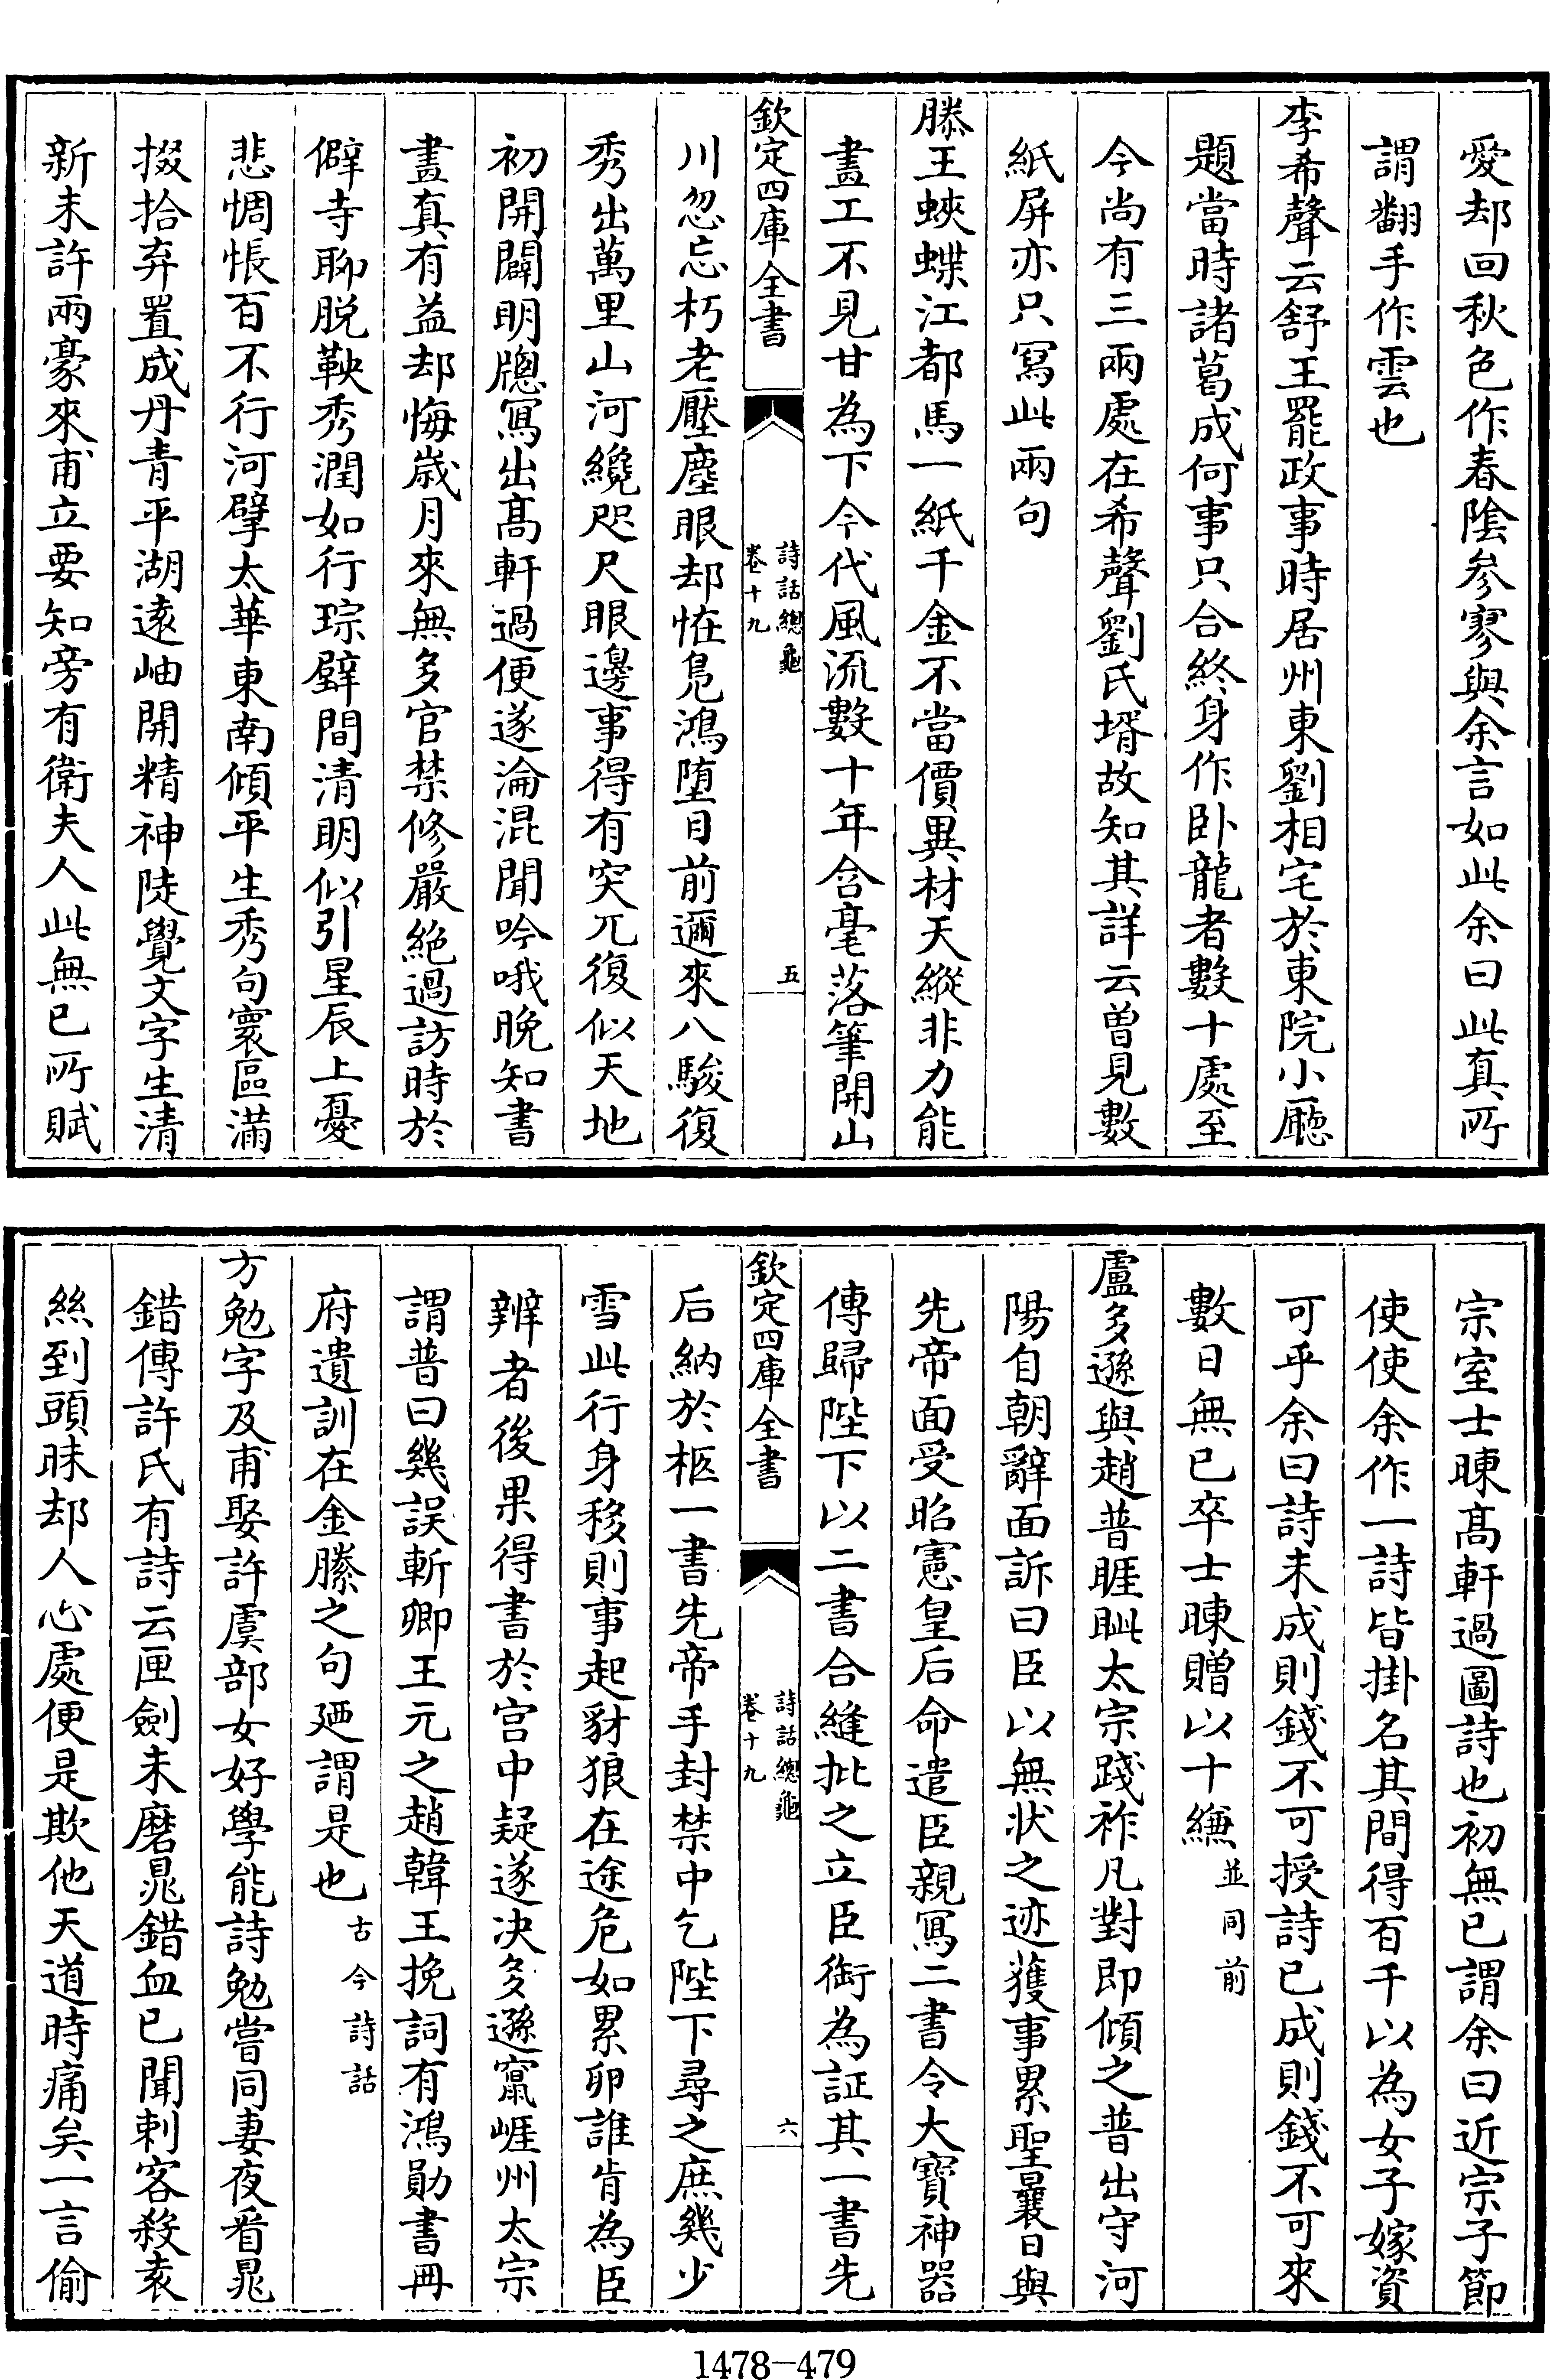 愛却回秋色作春陰参寥與余言如此余曰此真所
謂翻手作雲也
李希聲云舒王罷政事時居州東劉相宅於東院小廳
題當時諸葛成何事只合終身作卧龍者數十處至
今尚有三兩處在希聲劉氏壻故知其詳云曽見數
紙屏亦只寫此兩句
滕王蛺蝶江都馬一紙千金不當價異材天縱非力能
畫工不見甘為下今代風流數十年含毫落筆開山
欽定四庫全書
詩話總龜
卷十九
五
川忽忘朽老壓塵眼却恠鳬鴻堕目前邇來八駿復
秀出萬里山河纔咫尺眼邊事得有突兀復似天地
初開闢明牕寫出髙軒過便遂淪混聞吟哦晚知書
畫真有益却悔歳月來無多官禁修嚴絶過訪時於
僻寺聊脱鞅秀潤如行琮璧間清明似引星辰上憂
悲惆悵百不行河擘太華東南傾平生秀句寰區滿
掇拾弃置成丹青平湖逺岫開精神陡覺文字生清
新未許兩豪來甫立要知旁有衛夫人此無已所賦
宗室士暕髙軒過圖詩也初無已謂余曰近宗子節
使使余作一詩皆掛名其間得百千以為女子嫁資
可乎余曰詩未成則錢不可授詩已成則錢不可來
數日無已卒士暕贈以十縑並同前
盧多遜與趙普睚眦太宗踐祚凡對即傾之普出守河
陽自朝辭面訴曰臣以無状之迹獲事累聖曩日與
先帝面受昭憲皇后命遣臣親寫二書令大寶神器
傳歸陛下以二書合縫批之立臣銜為証其一書先
欽定四庫全書
詩話總龜
卷十九
六
后納於柩一書先帝手封禁中乞陛下尋之庶幾少
雪此行身移則事起豺狼在途危如累卵誰肯為臣
辨者後果得書於宫中疑遂决多遜竄崕州太宗
謂普曰幾誤斬卿王元之趙韓王挽詞有鴻勛書冊
府遺訓在金縢之句廼謂是也古今詩話
方勉字及甫娶許虞部女好學能詩勉嘗同妻夜看晁
錯傳許氏有詩云匣劍未磨晁錯血已聞刺客殺袁
絲到頭昧却人心處便是欺他天道時痛矣一言偷
1478-479